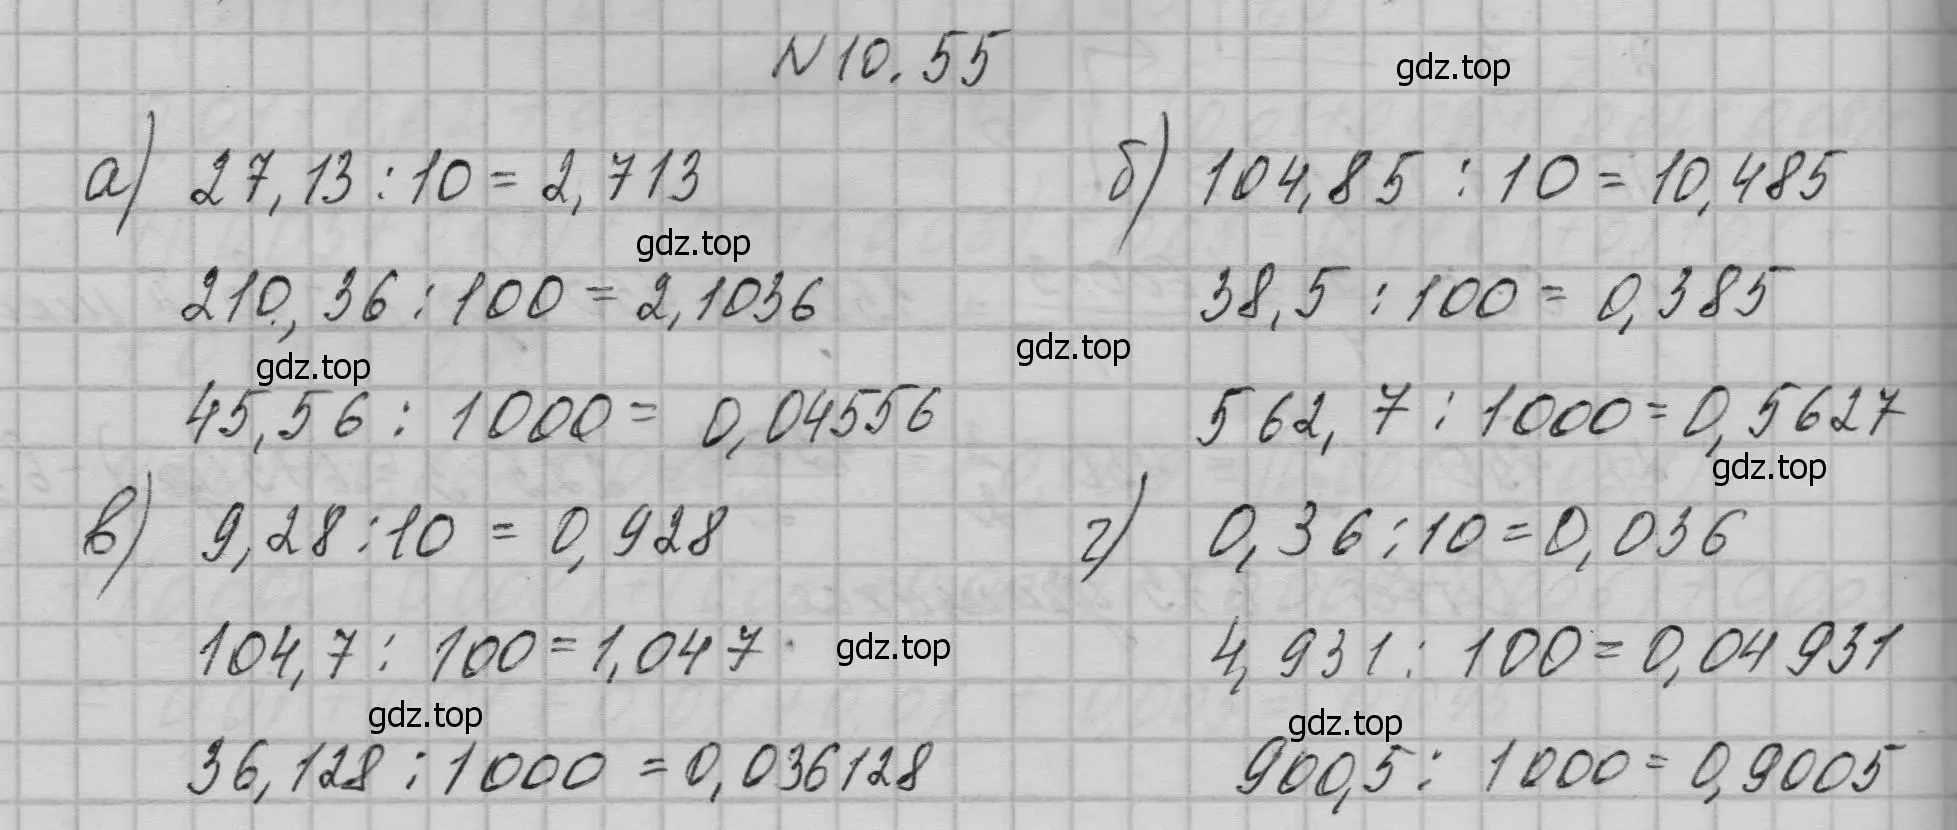 N 10.55
gdz.top
а) 27,13 : 10 = 2,713
б) 104,85 : 10 = 10,485
gdz.top
210,36 : 100 = 2,1036
38,5 : 100 = 0,385
gdz.top
gdz.top
45,56 : 1000 = 0,04556
562,7 : 1000 = 0,5627
gdz.top
в) 9,28 : 10 = 0,928
г) 0,36 : 10 = 0,036
104,7 : 100 = 1,047
gdz.top
4,931 : 100 = 0,04931
gdz.top
gdz.top
36,128 : 1000 = 0,036128
900,5 : 1000 = 0,9005